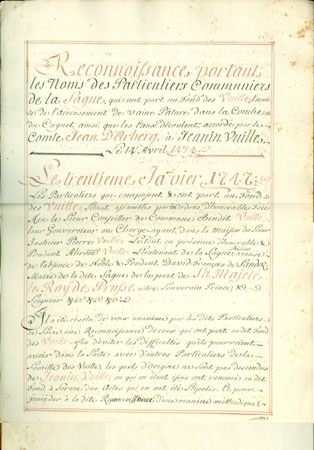 Reconnoissance portant
les Noms des Particuliers Communiers
de la Sagne, qui ont part au Fond des Vuille, en
de l'accensement des vaine Pature, dans la Combe
du Cuquet, ainsi que les Pans découlent, accordés par le
Comte Jean D'Arberg à Jeanin Vuille,
Le 14 Avril 1474
Le trentieme Janvier 1747.
Les Particuliers qui composent & ont part au Fond
des Vuille, étant assemblés par
Mons. le Sieur Conseiller de Commune Benoit Vuille
leur Gouverneur en Charge ayant dans la Maison du Sieur
Justicier Pierre Vuille, Le tout en présence d'honorable &
Prudent Abraham Vuille Lieutenant de la Sagne
de l'absence de Noble & Prudent David François de Sandoz
Maire de la dite Sagne de la part de Sa Majesté
le Roy de Prusse notre Souverain Prince &
Seigneur &c &c &c
Il a été résolu de voix unanime par les dits Particuliers
de faire une Reconnoissance de ceux qui ont part au dit Fond
des Vuille, afin d'éviter les difficultés qu'ils pourroient
avoir dans la Suite avec d'autres Particuliers de la
Famille des Vuille, les quels d'origine ne sont pas descendus
de Jeanin Vuille, ou qui en étant issus ont renoncé au dit
Fond à forme des Actes qui en ont été Stipulés. Et pour
procéder à la dite Reconnoissance d'une maniere méthodique &